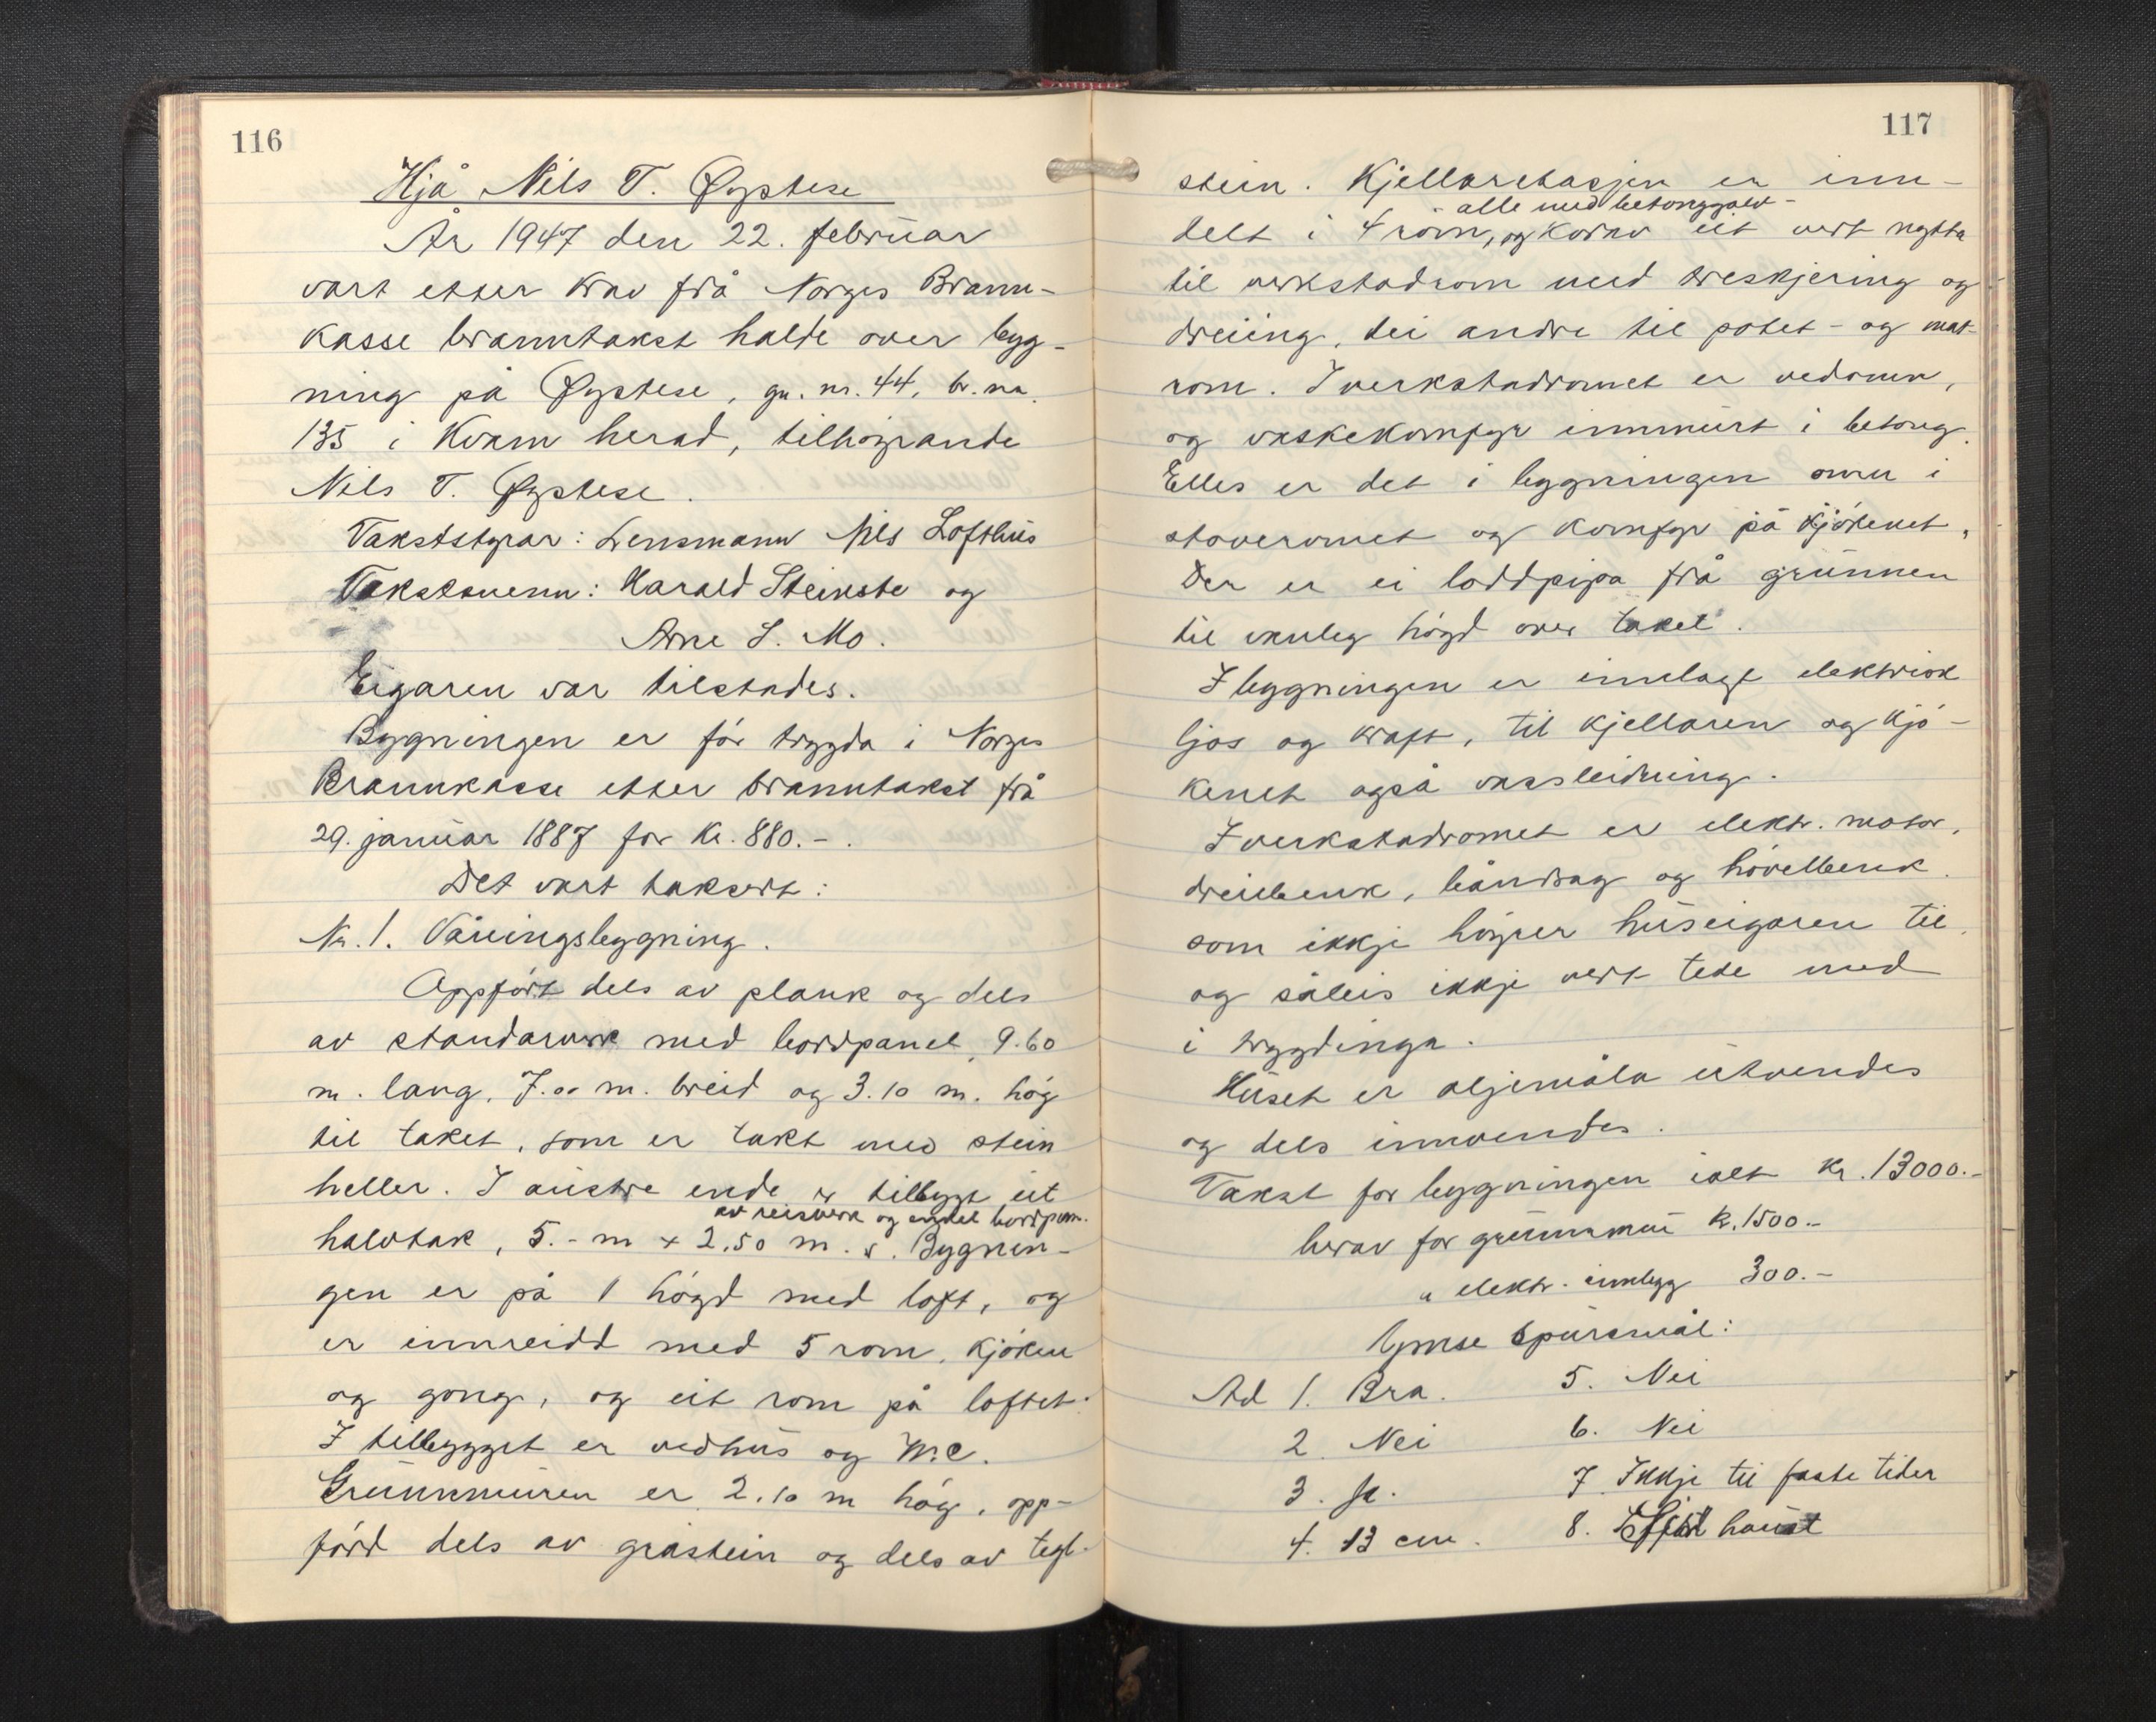 116
Hjå Nils T. Øystese
År 1947 den 22. februar
vart etter krav frå Norges Brann-
kasse branntakst halde over byg-
ning på Øystese, gn. nr. 44, br. nr.
135 i Kvam herad, tilhøyrande
Nils T. Øystese.
Takststyrar: Lensmann Nils Lofthus
Takstmenn: Harald Steinstø og
Arne L. Mo.
Eigaren var tilstades.
Bygningen er før trygda i Norges
Brannkasse etter branntakst frå
29. januar 1887 for kr. 880.-.
Det vart taksert:
Nr. 1. Våningsbygning.
Oppført dels av plank og dels
av standarverk med bordpanel, 9.60
m. lang, 7.00 m. breid og 3.10 m. høg
til taket, som er tekt med stein
heller. I austre ende er tilbygt eit
av reisverk og endel bordpan.
halvtak, 5.- m x 2,50 m. s. Bygnin-
gen er på 1 høgd med loft, og
er innreidd med 5 rom, kjøken
og gong, og eit rom på loftet.
I tilbygget er vedhus og W.C.
Grunnmuren er 2.10 m høg, opp-
førd dels av gråstein og dels av tegl-
117
stein. Kjellaretasjen er inn-
alle med betonggolv-
delt i 4 rom, og korav eit vert nytta
til verkstadrom med treskjering og
dreiing, dei andre til potet- og mat-
rom. I verkstadromet er vedomn,
og vaskekomfyr innmurt i betong.
Elles er det i bygningen omn i
stoveromet og komfyr på kjøkenet.
Der er ei loddpipa frå grunnen
til vanleg høgd over taket.
I bygningen er innlagt elektrisk
ljos og kraft, til kjellaren og kjø-
kenet også vassleidning.
I verkstadromet er elektr. motor,
dreiebenk, båndsag og høvelbenk.
som ikkje høyrer huseigaren til,
og såleis ikkje vert teke med
i trygdinga.
Huset er oljemåla utvendes
og dels innvendes.
Takst for bygningen ialt kr. 13000.-
herav for grunnmur kr. 1500.-
" elektr. innlegg 300.-
Ymse spursmål:
Ad 1. Bra. 5. Nei
2. Nei 6. Nei
3. Ja. 7. Ikkje til faste tider
4. 13 cm. 8. haust